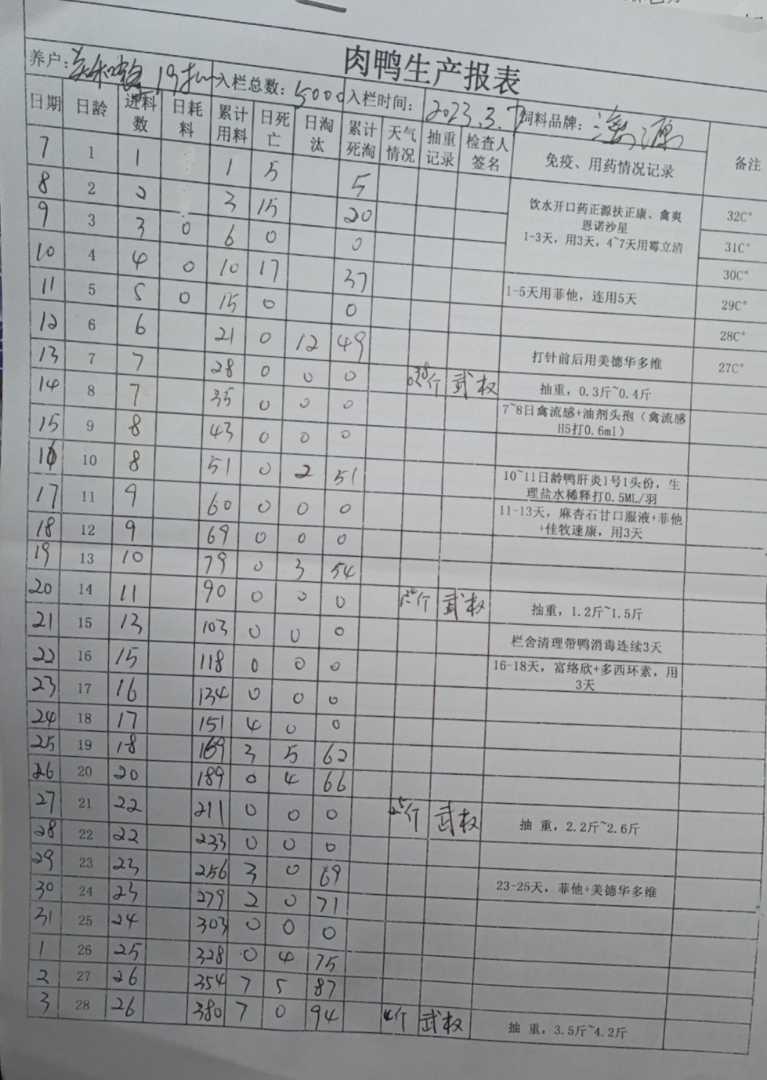 肉鸭生产报表
养户: 19批 入栏总数: 5000 入栏时间: 2023.3.7 饲料品牌: 海源
日期 日龄 进料数 日耗料 累计用料 日死亡 日淘汰 累计死淘 天气情况 抽重记录 检查人签名 免疫、用药情况记录 备注
7 1 1 1 5 5
8 2 2 3 15 20 饮水开口药正源扶正康、禽爽 32C°
9 3 3 0 6 0 0 恩诺沙星 31C°
1-3天，用3天，4~7天用霉立清
10 4 4 0 10 17 37 30C°
11 5 5 0 15 0 0 1-5天用菲他，连用5天 29C°
12 6 6 21 0 12 49 28C°
13 7 7 28 0 0 0 打针前后用美德华多维 27C°
14 8 7 35 0 0 0 斤 武权 抽重，0.3斤~0.4斤
15 9 8 43 0 0 0 7~8日禽流感+油剂头孢（禽流感
H5打0.6ml）
16 10 8 51 0 2 51 10~11日龄鸭肝炎1号1头份，生
理盐水稀释打0.5ML/羽
17 11 9 60 0 0 0 11-13天，麻杏石甘口服液+菲他
18 12 9 69 0 0 0 +佳牧速康，用3天
19 13 10 79 0 3 54
20 14 11 90 0 0 0 斤 武权 抽重，1.2斤~1.5斤
21 15 13 103 0 0 0 栏舍清理带鸭消毒连续3天
22 16 15 118 0 0 0 16-18天，富络欣+多西环素，用
3天
23 17 16 134 0 0 0
24 18 17 151 4 0 0
25 19 18 169 3 5 62
26 20 20 189 0 4 66
27 21 22 211 0 0 0 斤 武权 抽 重，2.2斤~2.6斤
28 22 22 233 0 0 0
29 23 23 256 3 0 69
30 24 23 279 2 0 71 23-25天，菲他+美德华多维
31 25 24 303 0 0 0
1 26 25 328 0 4 75
2 27 26 354 7 5 87
3 28 26 380 7 0 94 4斤 武权 抽 重，3.5斤~4.2斤